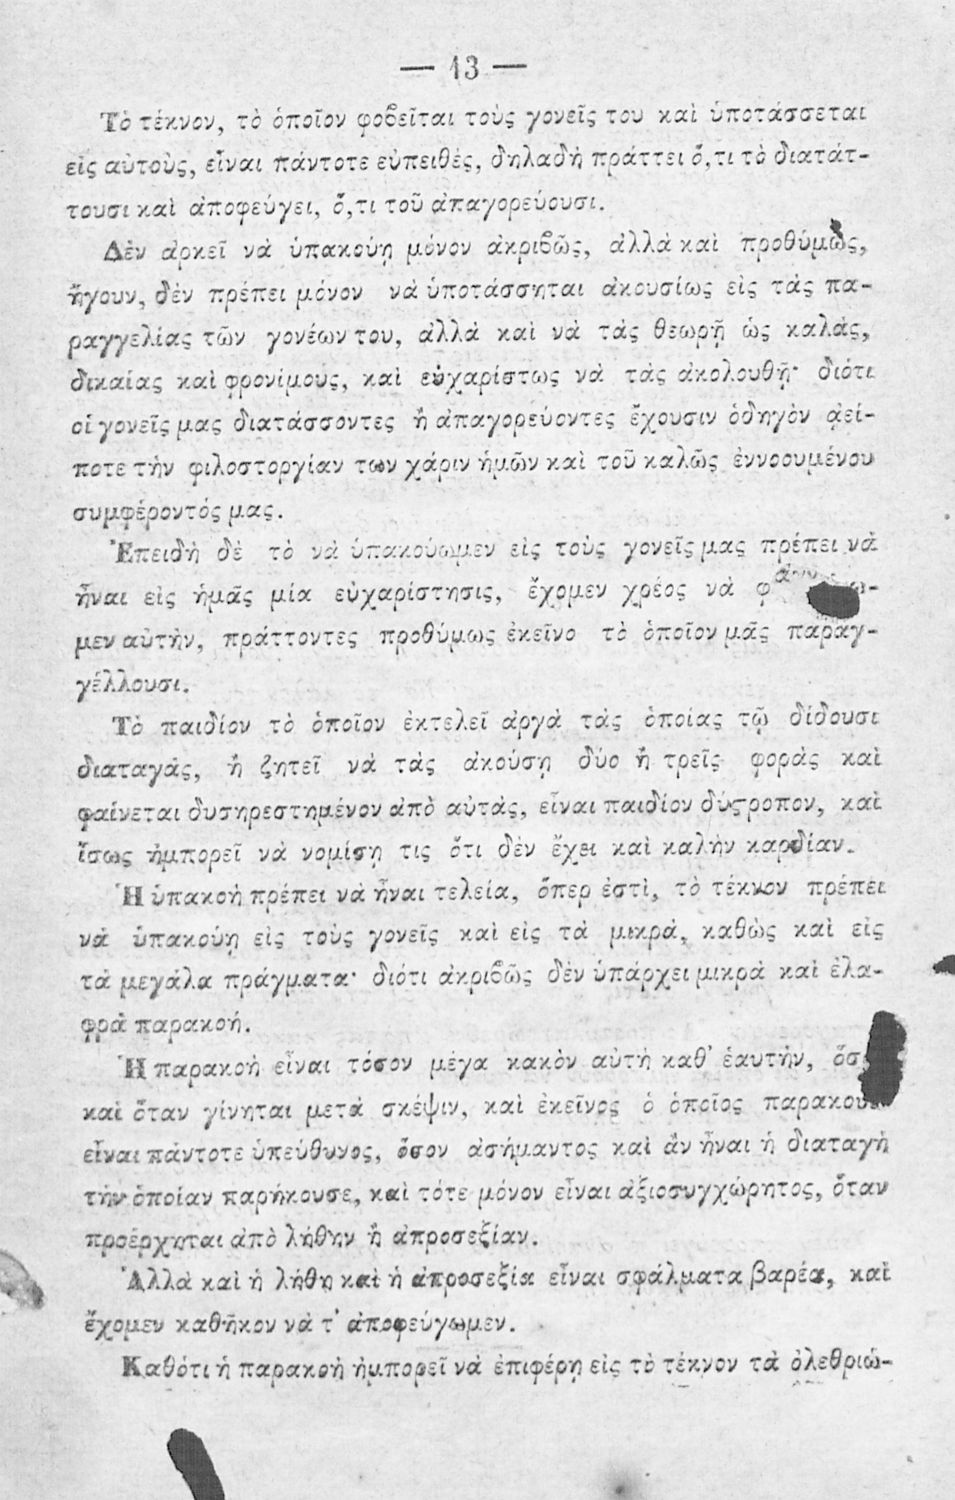 — 13 —
Τὸ τέκνον, τὸ ὁποῖον φοβεῖται τοὺς γονεῖς του καὶ ὑποτάσσεται
εἰς αὐτοὺς, εἶναι πάντοτε εὐπειθές, δηλαδὴ πράττει ὅ,τι τὸ διατάτ-
τουσι καὶ ἀποφεύγει, ὅ,τι τοῦ ἀπαγορεύουσι.
Δὲν ἀρκεῖ νὰ ὑπακούῃ μόνον ἀκριβῶς, ἀλλὰ καὶ προθύμως,
ἤγουν, δὲν πρέπει μόνον νὰ ὑποτάσσηται ἀκουσίως εἰς τὰς πα-
ραγγελίας τῶν γονέων του, ἀλλὰ καὶ νὰ τὰς θεωρῇ ὡς καλὰς,
δικαίας καὶ φρονίμους, καὶ εὐχαρίστως νὰ τὰς ἀκολουθῇ· διότι
οἱ γονεῖς μας διατάσσοντες ἢ ἀπαγορεύοντες ἔχουσιν ὁδηγὸν ἀεί-
ποτε τὴν φιλοστοργίαν των χάριν ἡμῶν καὶ τοῦ καλῶς ἐννοουμένου
συμφέροντός μας.
Ἐπειδὴ δὲ τὸ νὰ ὑπακούωμεν εἰς τοὺς γονεῖς μας πρέπει νὰ
ἦναι εἰς ἡμᾶς μία εὐχαρίστησις, ἔχομεν χρέος νὰ
μεν αὐτὴν, πράττοντες προθύμως ἐκεῖνο τὸ ὁποῖον μᾶς παραγ-
γέλλουσι.
Τὸ παιδίον τὸ ὁποῖον ἐκτελεῖ ἀργὰ τὰς ὁποίας τῷ δίδουσι
διαταγὰς, ἢ ζητεῖ νὰ τὰς ἀκούσῃ δύο ἢ τρεῖς φορὰς καὶ
φαίνεται δυσηρεστημένον ἀπὸ αὐτὰς, εἶναι παιδίον δύςτροπον, καὶ
ἴσως ἠμπορεῖ νὰ νομίσῃ τις ὅτι δὲν ἔχει καὶ καλὴν καρδίαν.
Ἡ ὑπακοὴ πρέπει νὰ ἦναι τελεία, ὅπερ ἐστὶ, τὸ τέκνον πρέπει
νὰ ὑπακούῃ εἰς τοὺς γονεῖς καὶ εἰς τὰ μικρὰ, καθὼς καὶ εἰς
τὰ μεγάλα πράγματα· διότι ἀκριβῶς δὲν ὑπάρχει μικρὰ καὶ ἐλα-
φρὰ παρακοή.
Ἡ παρακοὴ εἶναι τόσον μέγα κακὸν αὐτὴ καθ' ἑαυτὴν,
καὶ ὅταν γίνηται μετὰ σκέψιν, καὶ ἐκεῖνος ὁ ὁποῖος παρακούει
εἶναι πάντοτε ὑπεύθυνος, ὅσον ἀσήμαντος καὶ ἂν ἦναι ἡ διαταγὴ
τὴν ὁποίαν παρήκουσε, καὶ τότε μόνον εἶναι ἀξιοσυγχώρητος, ὅταν
προέρχηται ἀπὸ λήθην ἢ ἀπροσεξίαν.
Ἀλλὰ καὶ ἡ λήθη καὶ ἡ ἀπροσεξία εἶναι σφάλματα βαρέα, καὶ
ἔχομεν καθῆκον νὰ τ' ἀποφεύγωμεν.
Καθότι ἡ παρακοὴ ἠμπορεῖ νὰ ἐπιφέρῃ εἰς τὸ τέκνον τὰ ὀλεθριώ-